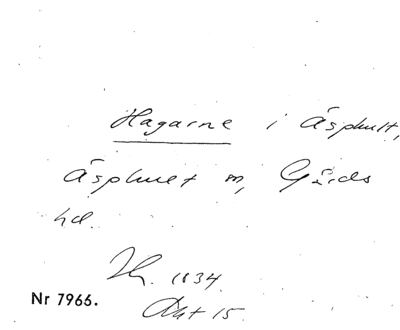 Hagarne i Äsphult,
Äsphult sn, Gärds
hd.
Hr. 1834.
Akt 15.
Nr 7966.